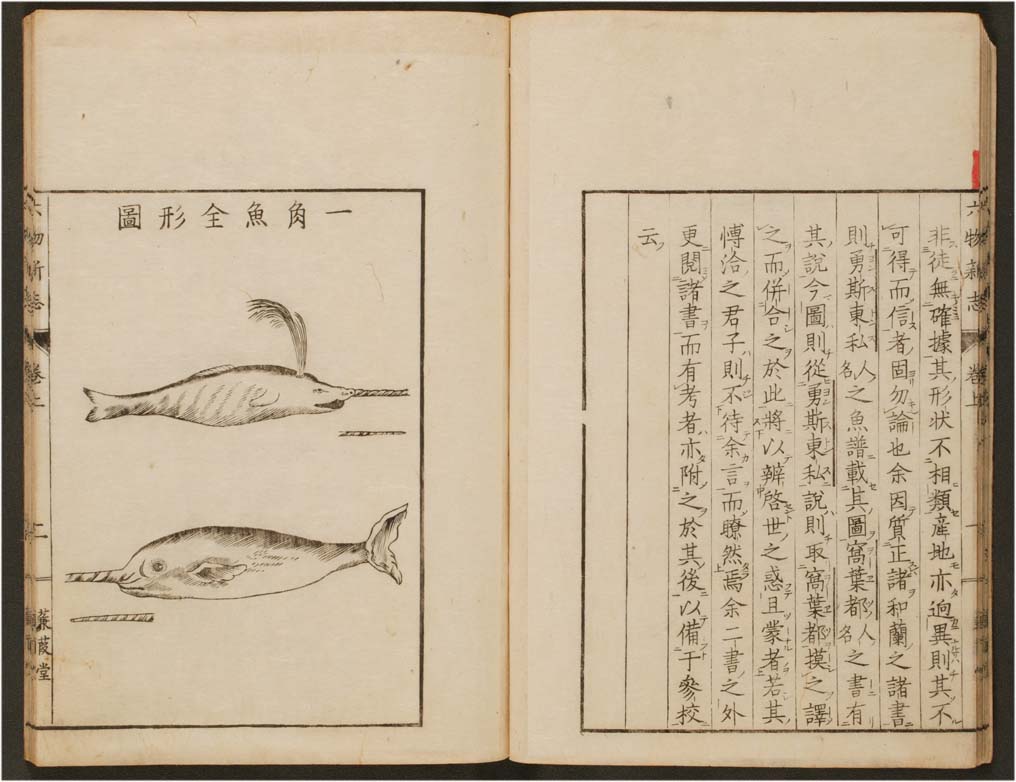 六物新志 卷上
非徒無確據其形状不相類産地亦逈異則其不
可得而信者固勿論也余因質正諸和蘭之諸書
則勇斯東私人名之魚譜載其圖窩葉都人名之書有
其說今圖則從勇斯東私說則取窩葉都摸之譯
之而併合之於此將以辨啓世之惑且蒙者若其
博洽之君子則不待余言而瞭然焉余二書之外
更閱諸書而有考者亦附之於其後以備于參校
云
一角魚全形圖
蒹葭堂